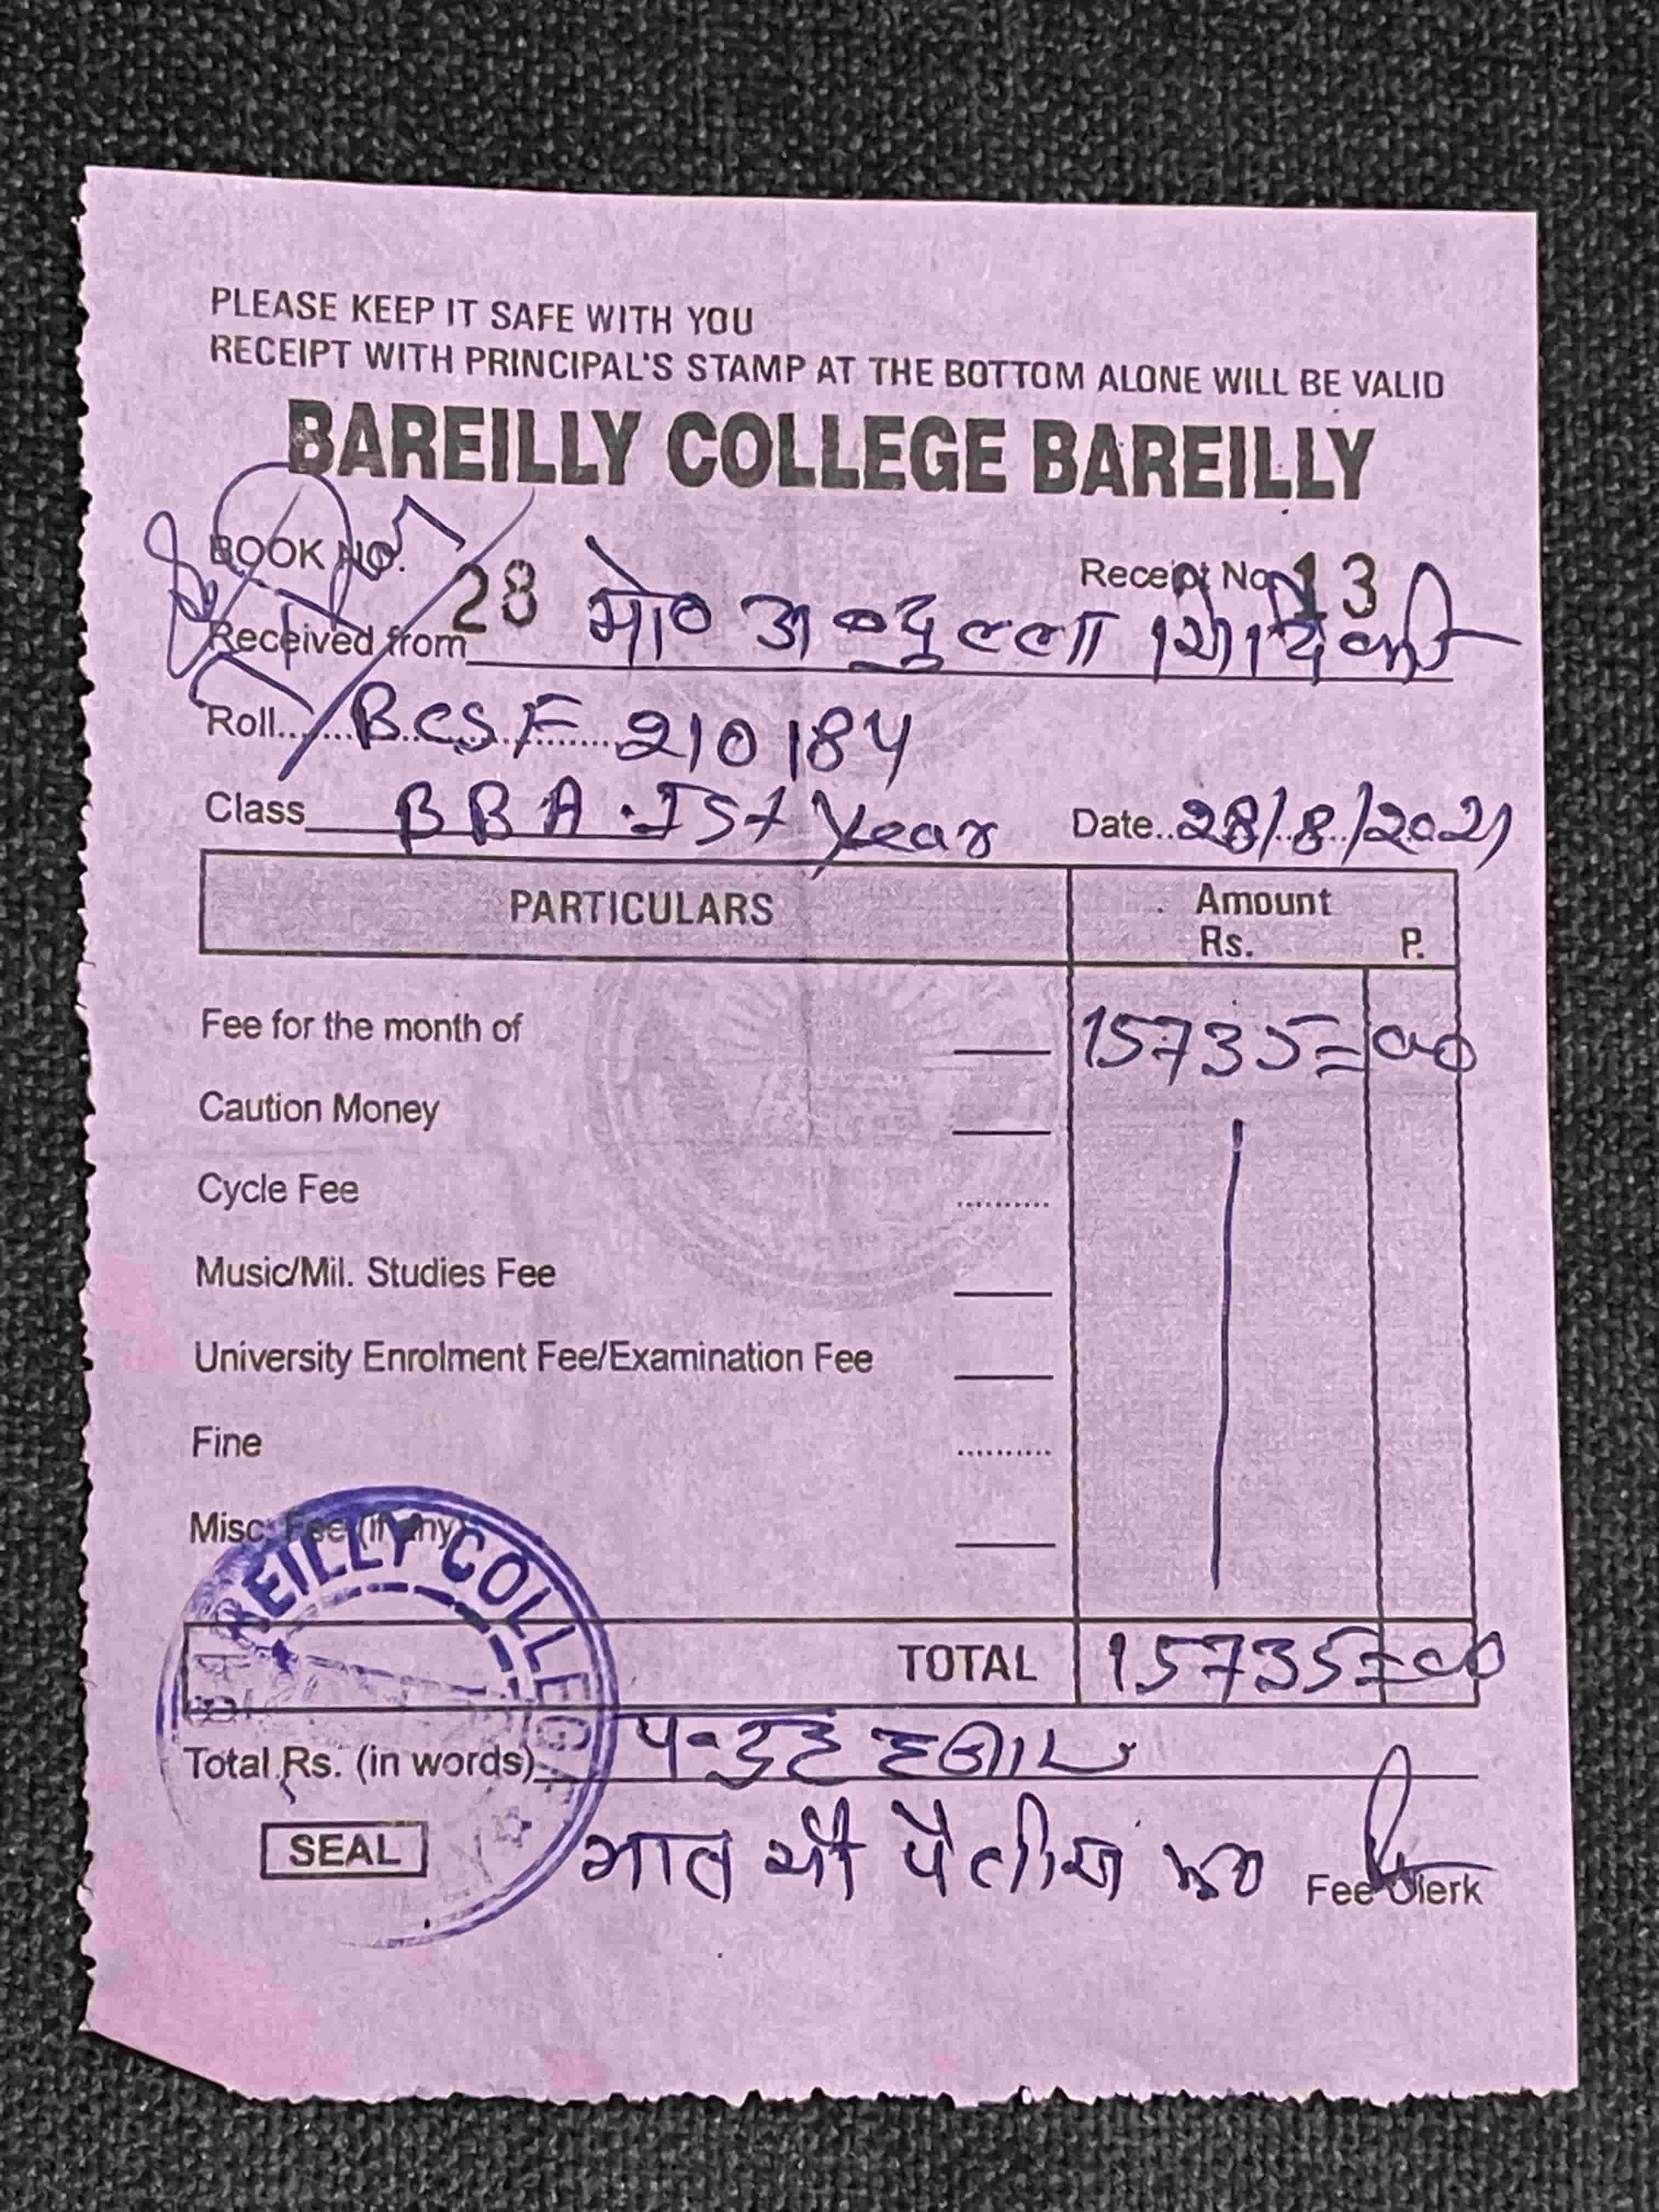 PLEASE KEEP IT SAFE WITH YOU
RECEIPT WITH PRINCIPAL'S STAMP AT THE BOTTOM ALONE WILL BE VALID
BAREILLY COLLEGE BAREILLY
BOOK NO. 28 Receipt No. 13
Received from मो० अब्दुल्ला सिद्दीकी
Roll...... BCSF 210184
Class BBA Ist Year Date.. 28/8/2021
PARTICULARS Amount
Rs. P.
Fee for the month of 15735=00
Caution Money
Cycle Fee ..........
Music/Mil. Studies Fee
University Enrolment Fee/Examination Fee
Fine ..........
Misc. Fee (if any)
REILLY COLLEGE
TOTAL 15735=00
Total Rs. (in words) पन्द्रह हजार
सात सौ पैतीस रू०
SEAL Fee Clerk